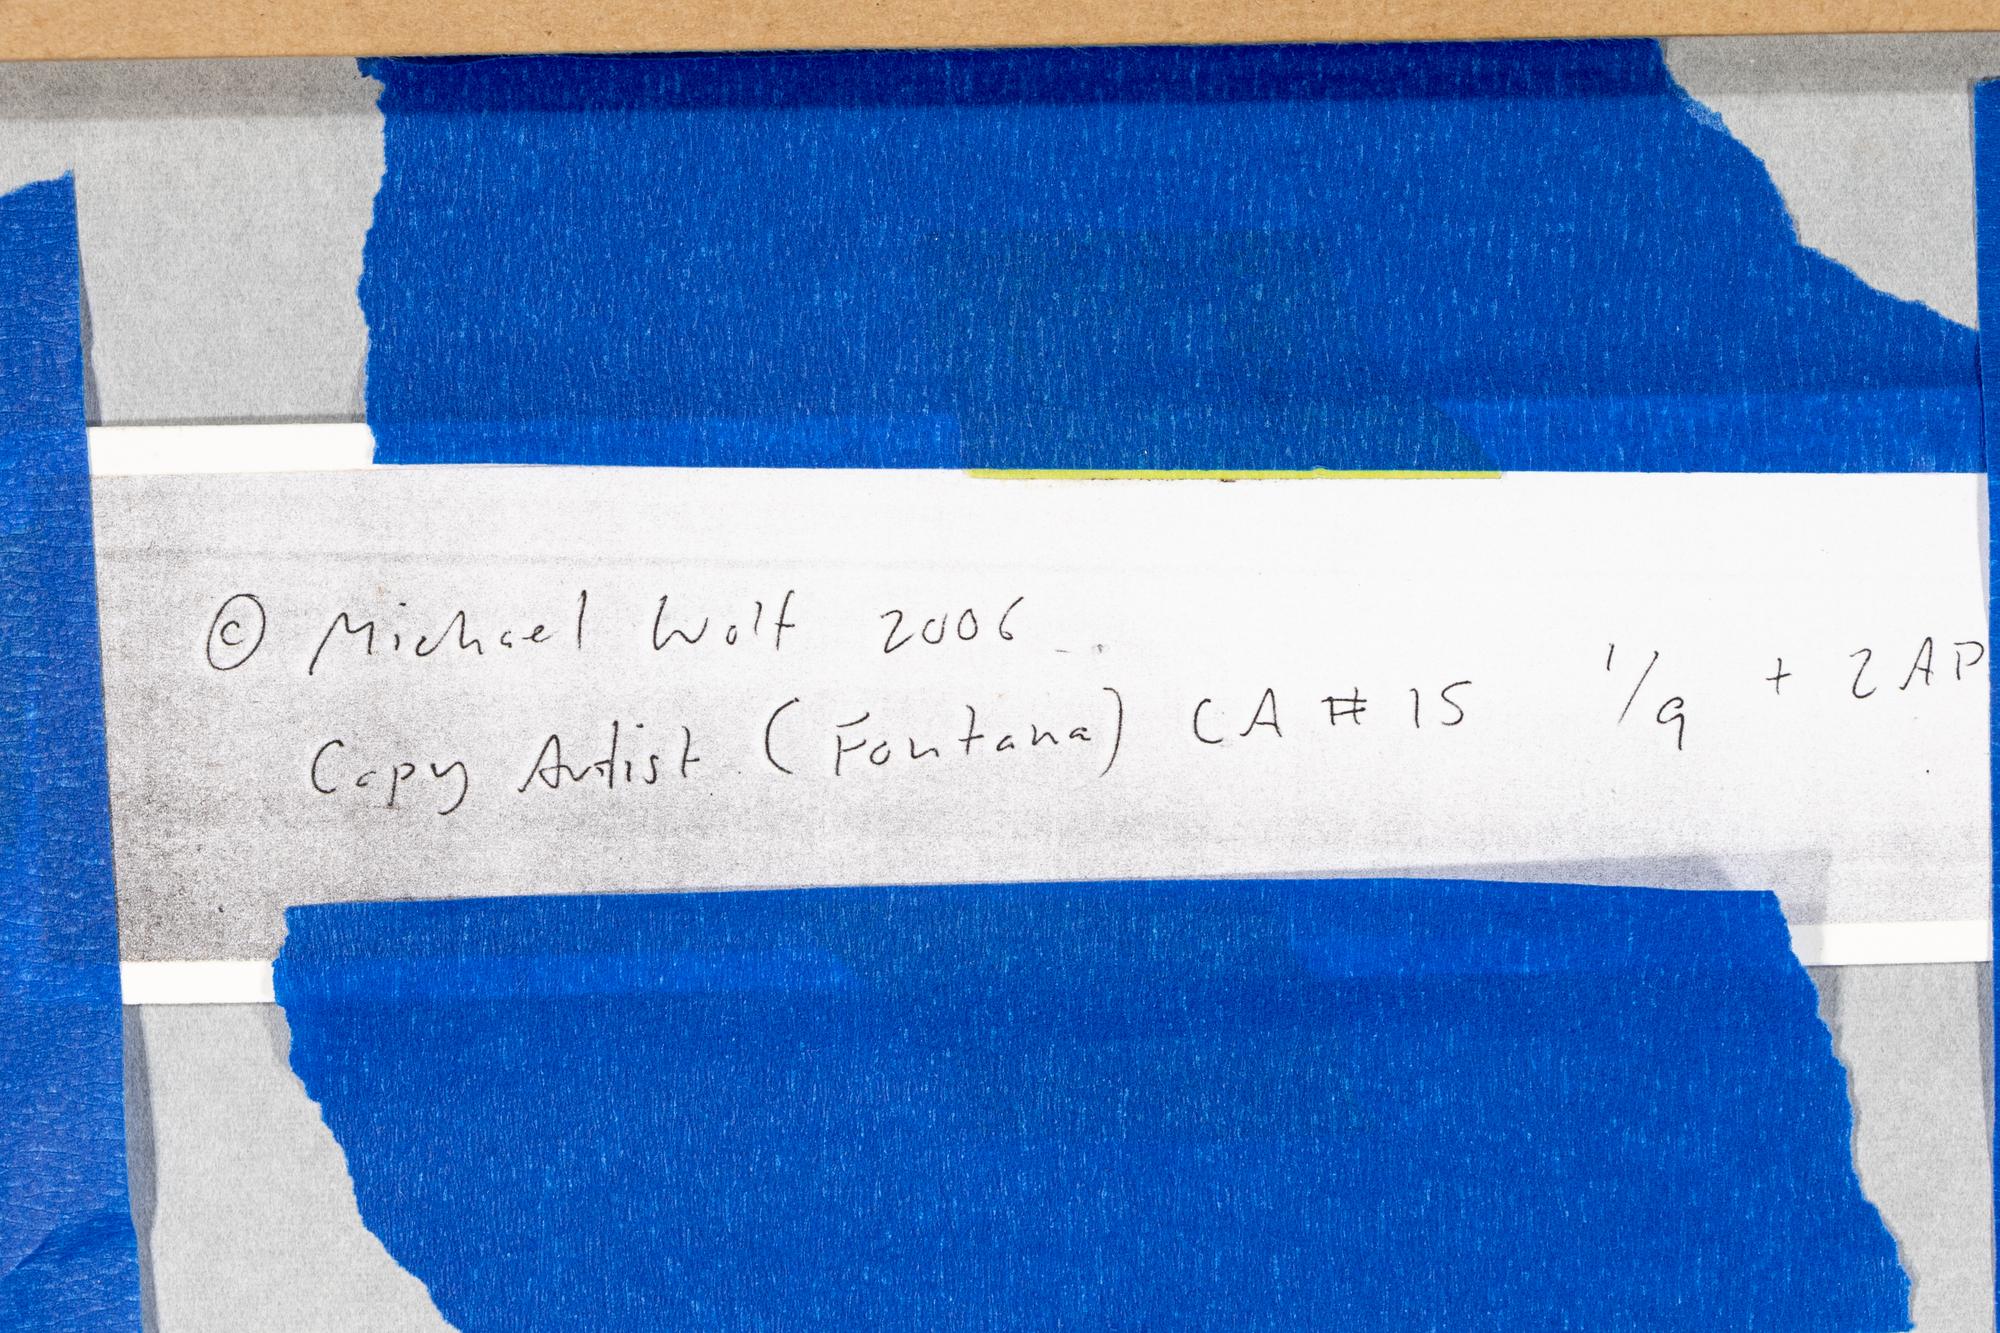 © Michael Wolf 2006
Copy Artist (Fontana) CA # 15 1/9 + 2 AP